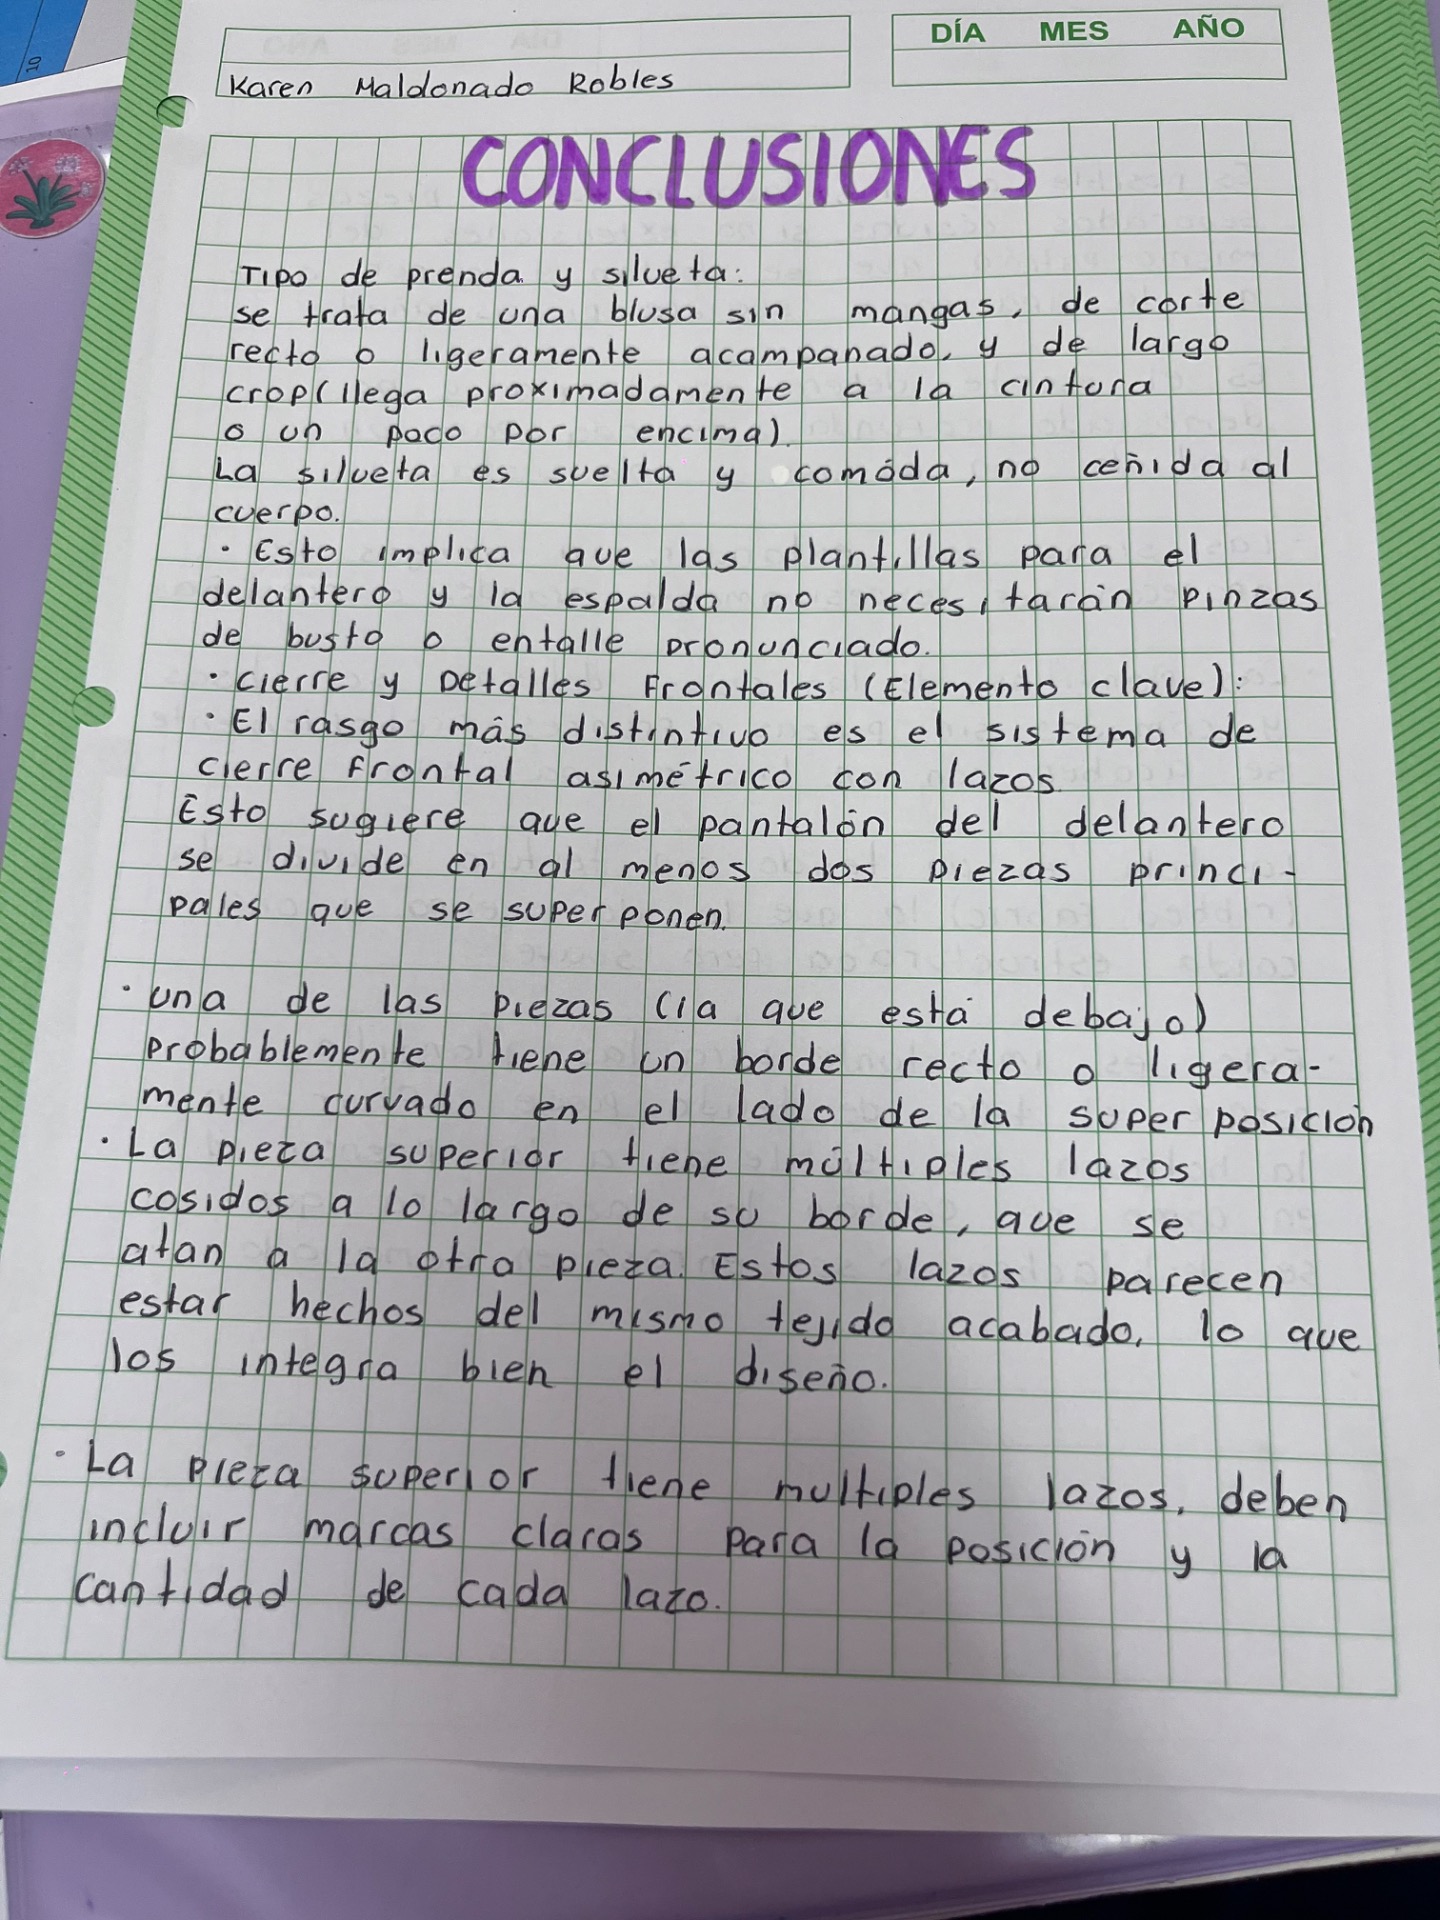 10
DÍA MES AÑO
Karen Maldonado Robles
CONCLUSIONES
Tipo de prenda y silueta:
se trata de una blusa sin mangas, de corte
recto o ligeramente acampanado, y de largo
crop(llega proximadamente a la cintura
o un poco por encima).
La silueta es suelta y comóda, no ceñida al
cuerpo.
· Esto implica que las plantillas para el
delantero y la espalda no necesitarán pinzas
de busto o entalle pronunciado.
· cierre y Detalles Frontales (Elemento clave):
· El rasgo más distintivo es el sistema de
cierre frontal asimétrico con lazos
Esto sugiere que el pantalón del delantero
se divide en al menos dos piezas princi-
pales que se superponen.
· una de las piezas (la que está debajo)
probablemente tiene un borde recto o ligera-
mente curvado en el lado de la superposición
· La pieza superior tiene múltiples lazos
cosidos a lo largo de su borde, que se
atan a la otra pieza. Estos lazos parecen
estar hechos del mismo tejido acabado, lo que
los integra bien el diseño.
· La pieza superior tiene multiples lazos, deben
incluir marcas claras para la posición y la
cantidad de cada lazo.